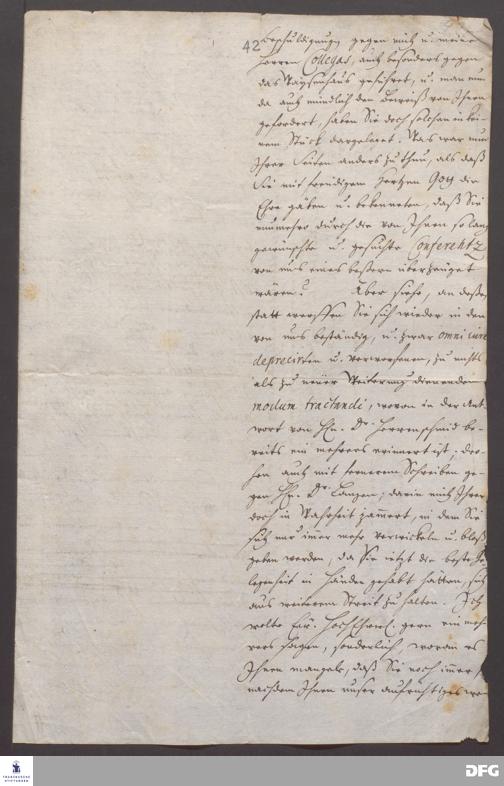 42
beschuldigungen gegen mich u. meine
Herren Collegas, auch besonders gegen
das Waysenhaus geführet, u. man nun
da auch mündlich den Beweiß von Ihnen
gefordert, haben Sie doch solchen in kei-
nem Stück dargeleget. Was war nun
Ihrer Seiten anders zu thun, als daß
Sie mit freudigem Hertzen Gott die
Ehre gäben u. bekenneten, daß Sie
nunmehro durch die von Ihnen so lang
gewünschte u. gesuchte Conferentz
von uns eines bessern überzeuget
wären? Aber siehe, an dessen
statt werffen Sie sich wieder in den
von uns beständig, u. zwar omni jure
deprecirten u. verworfenen, zu nichts
als zu neuer Weiterung dienenden
modum tractandi, wovon in der Ant-
wort von Hn. Dr. Herrnschmid be-
reits ein mehrers erinnert ist; dro-
hen auch mit fernerem Schreiben ge-
gen Hn. Dr. Langen; darin mich Ihrer
doch in Wahrheit jammert, in dem Sie
sich nur immer mehr verwickeln u. bloß
geben werden, da Sie itzt die beste Ge-
legenheit in Händen gehabt hatten, sich
aus weiterem Streit zu halten. Ich
wolte Eur. HochEhrw. gern ein meh-
rers sagen, sonderlich, woran es
Ihnen mangele, daß Sie noch immer,
nachdem Ihnen unser aufrichtiges
FRANCKESCHE
STIFTUNGEN
DFG